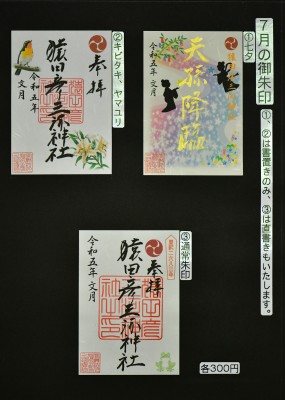 7月の御朱印
①、②は書置きのみ、③は直書きもいたします。
①七夕
天孫降臨
令和五年
文月
②キビタキ、ヤマユリ
奉拝
猿田彦三河神社
令和五年
文月
③通常朱印
奉拝
猿田彦三河神社
令和五年 文月
各300円